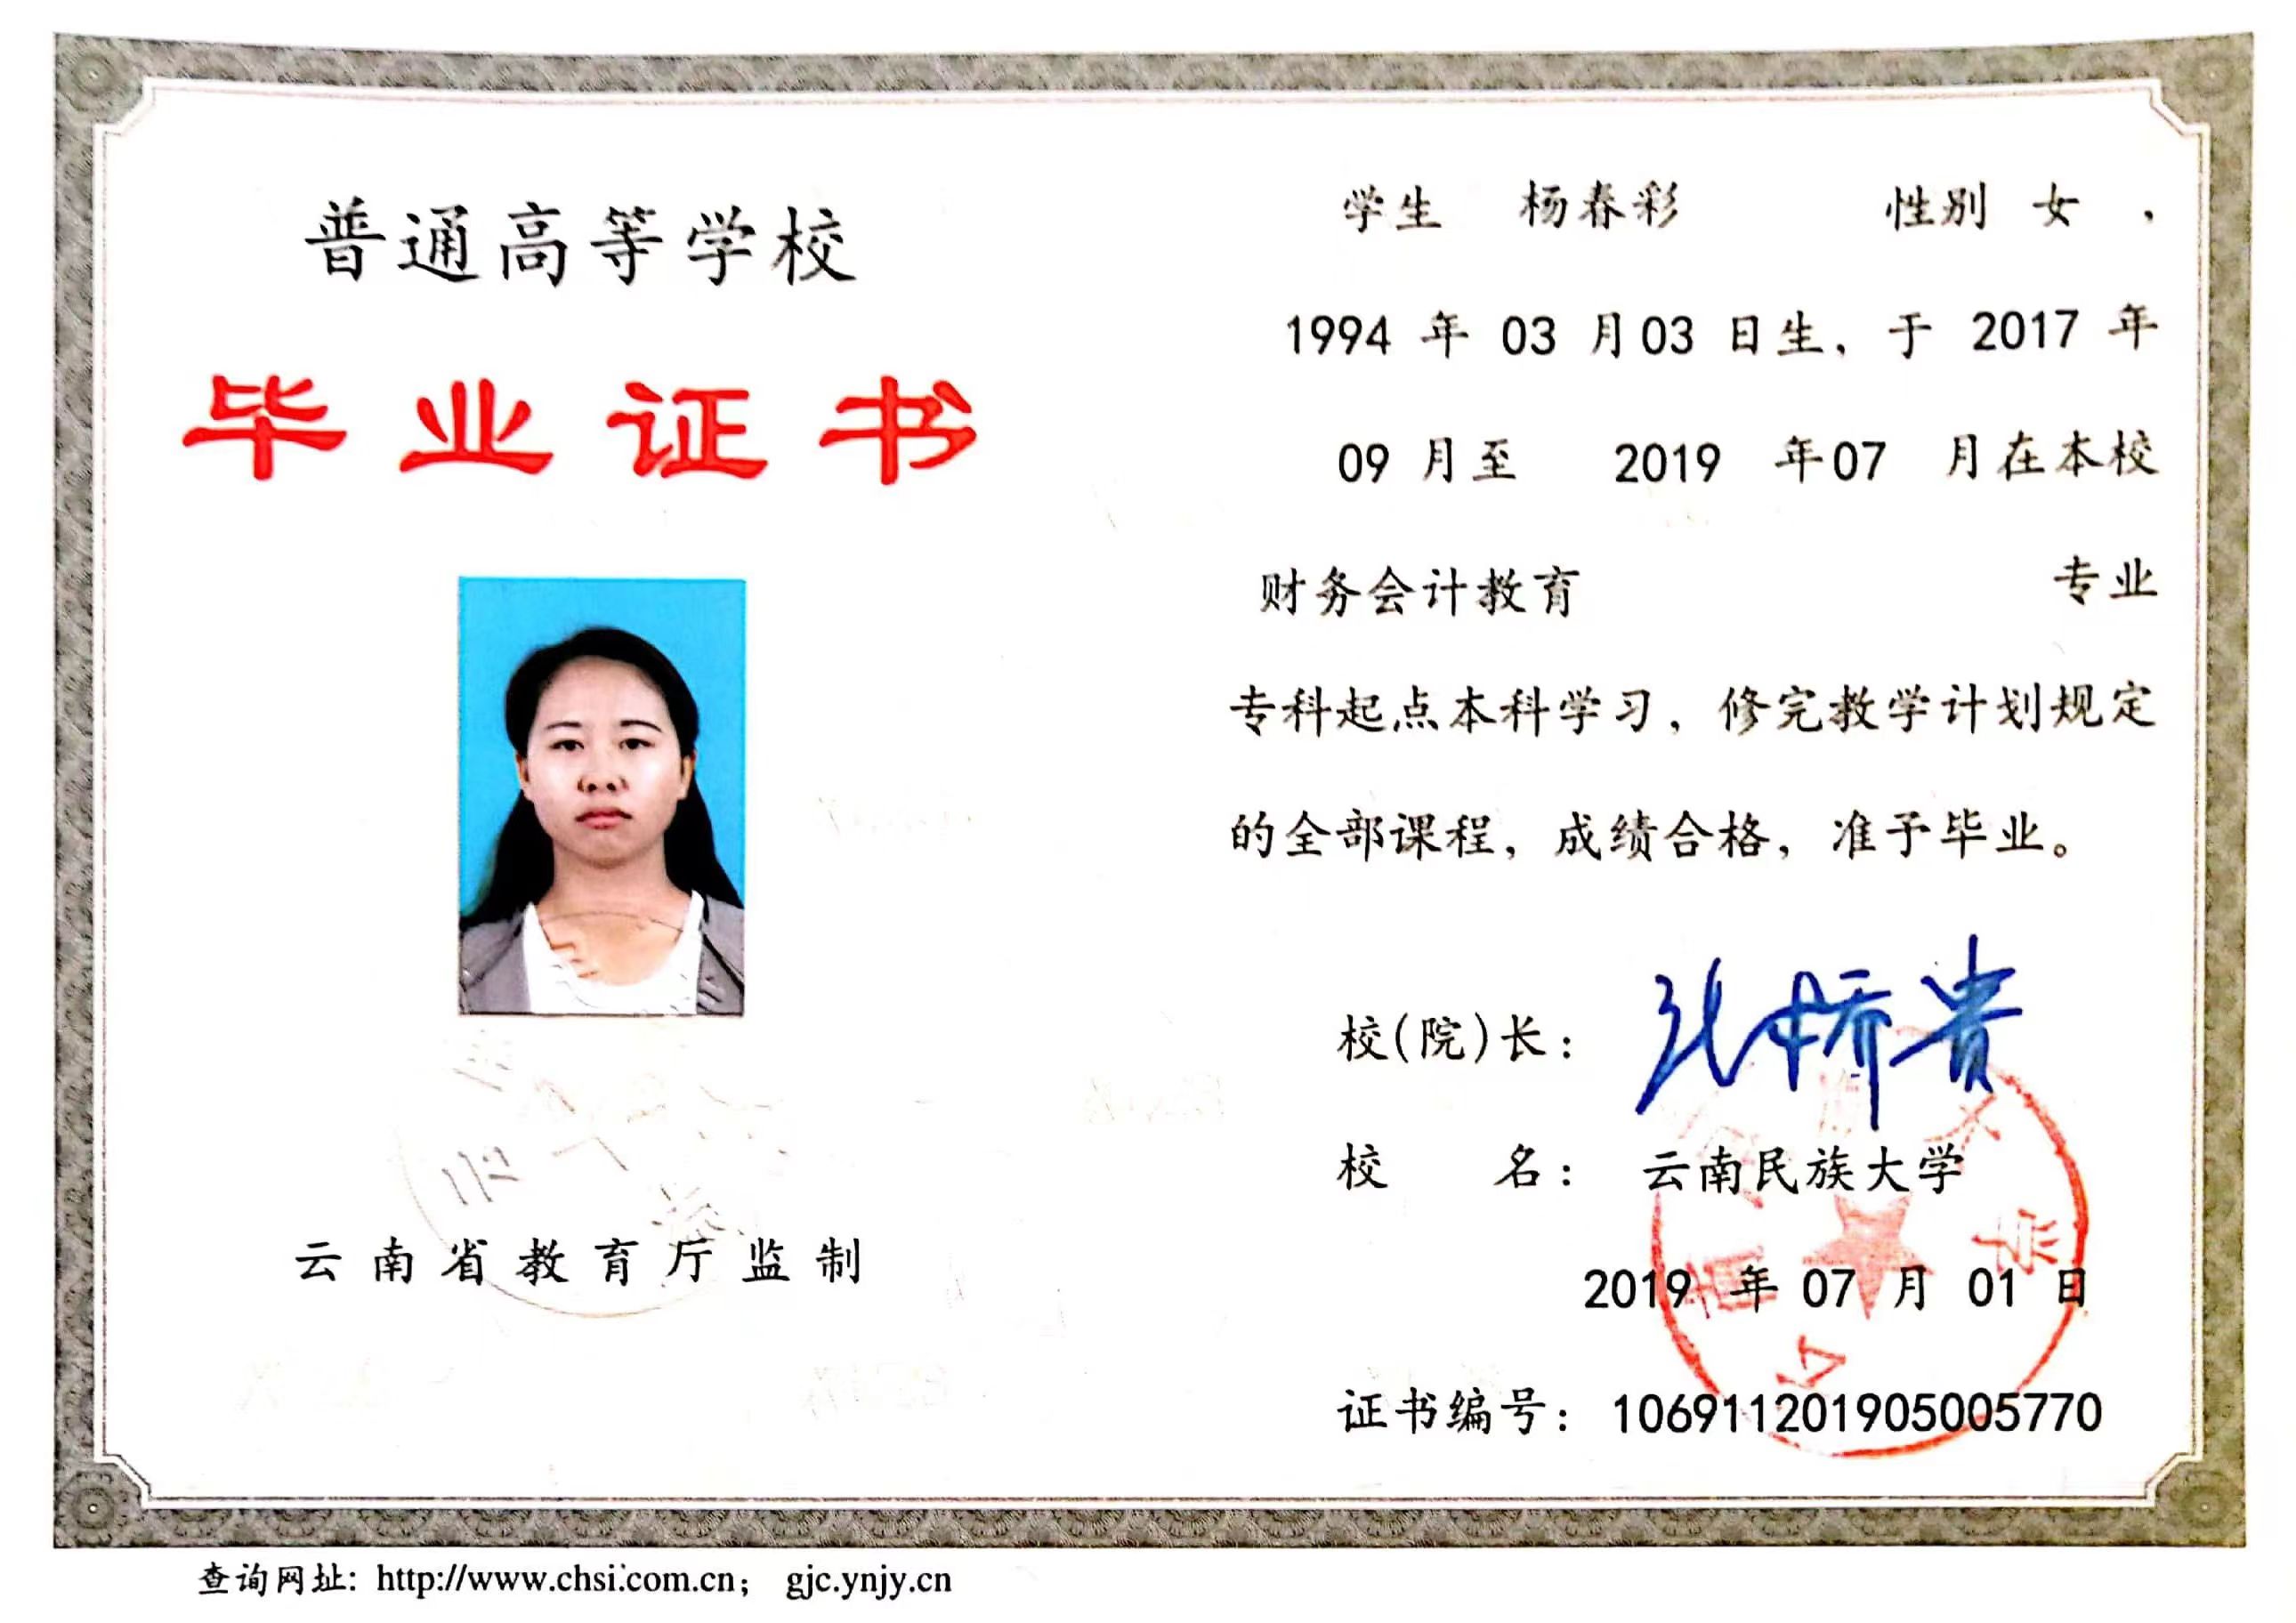 普通高等学校
毕业证书
云南省教育厅监制
学生 杨春彩 性别 女 ,
1994 年 03 月 03 日生, 于 2017 年
09 月至 2019 年 07 月在本校
财务会计教育 专业
专科起点本科学习, 修完教学计划规定
的全部课程, 成绩合格, 准予毕业。
校(院)长: 张桥贵
校 名: 云南民族大学
2019 年 07 月 01 日
证书编号: 106911201905005770
查询网址: http://www.chsi.com.cn; gjc.ynjy.cn